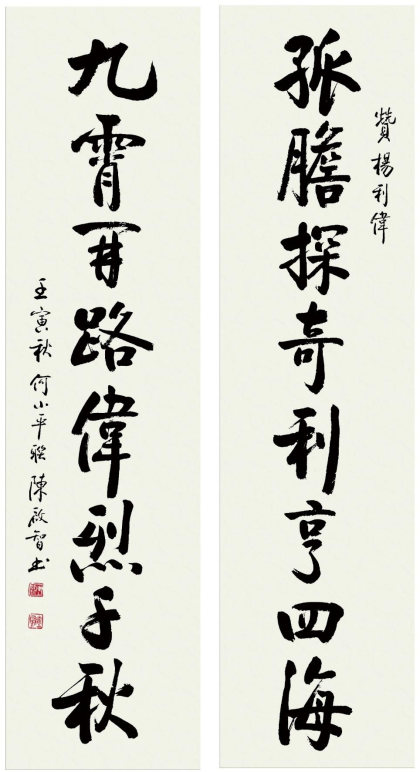 贊楊利偉
孤膽探奇利亨四海
九霄开路偉烈千秋
壬寅秋何小平聯陳啟智书